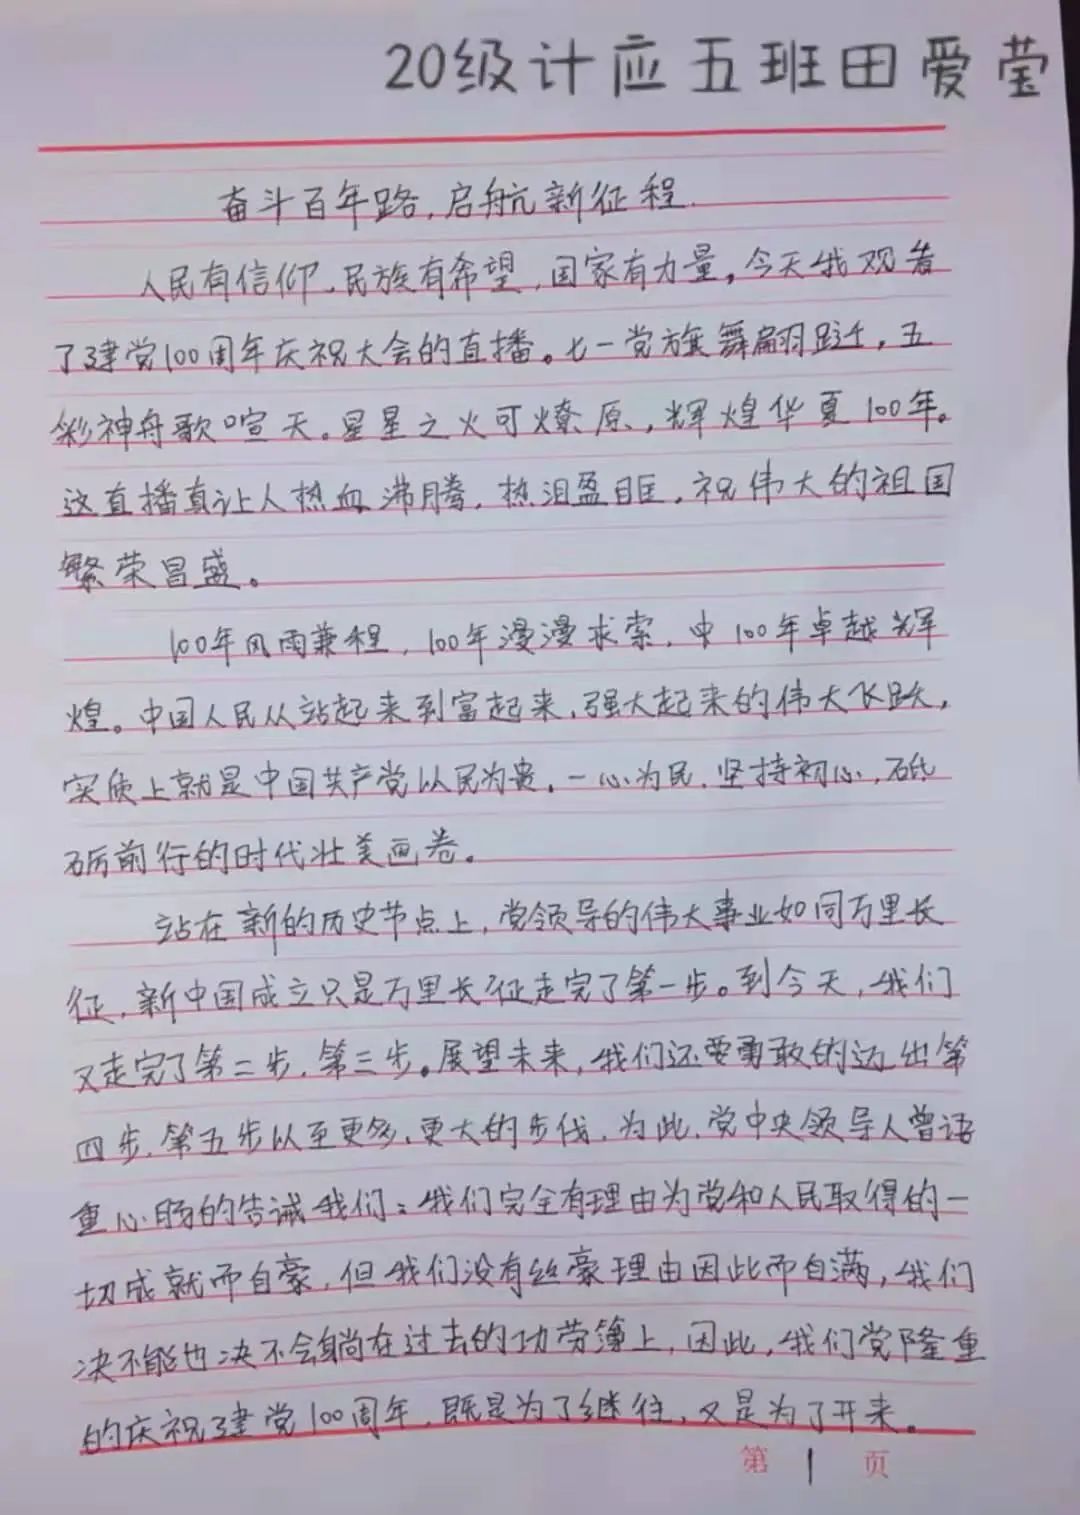 20级计应五班田爱莹
奋斗百年路,启航新征程.
人民有信仰,民族有希望,国家有力量。今天我观看
了建党100周年庆祝大会的直播。七一党旗舞翩跹,五
彩神舟歌喧天。星星之火可燎原,辉煌华夏100年。
这直播真让人热血沸腾,热泪盈眶,祝伟大的祖国
繁荣昌盛。
100年风雨兼程,100年漫漫求索,中100年卓越辉
煌。中国人民从站起来到富起来,强大起来的伟大飞跃,
实质上就是中国共产党以民为贵,一心为民,坚持初心,砥
砺前行的时代壮美画卷。
站在新的历史节点上,党领导的伟大事业如同万里长
征,新中国成立只是万里长征走完了第一步。到今天,我们
又走完了第二步,第三步。展望未来,我们还要勇敢的迈出第
四步,第五步以至更多,更大的步伐,为此,党中央领导人曾语
重心肠的告诫我们:我们完全有理由为党和人民取得的一
切成就而自豪,但我们没有丝豪理由因此而自满,我们
决不能也决不会躺在过去的功劳簿上,因此,我们党隆重
的庆祝建党100周年,既是为了继往,又是为了开来。
第 1 页